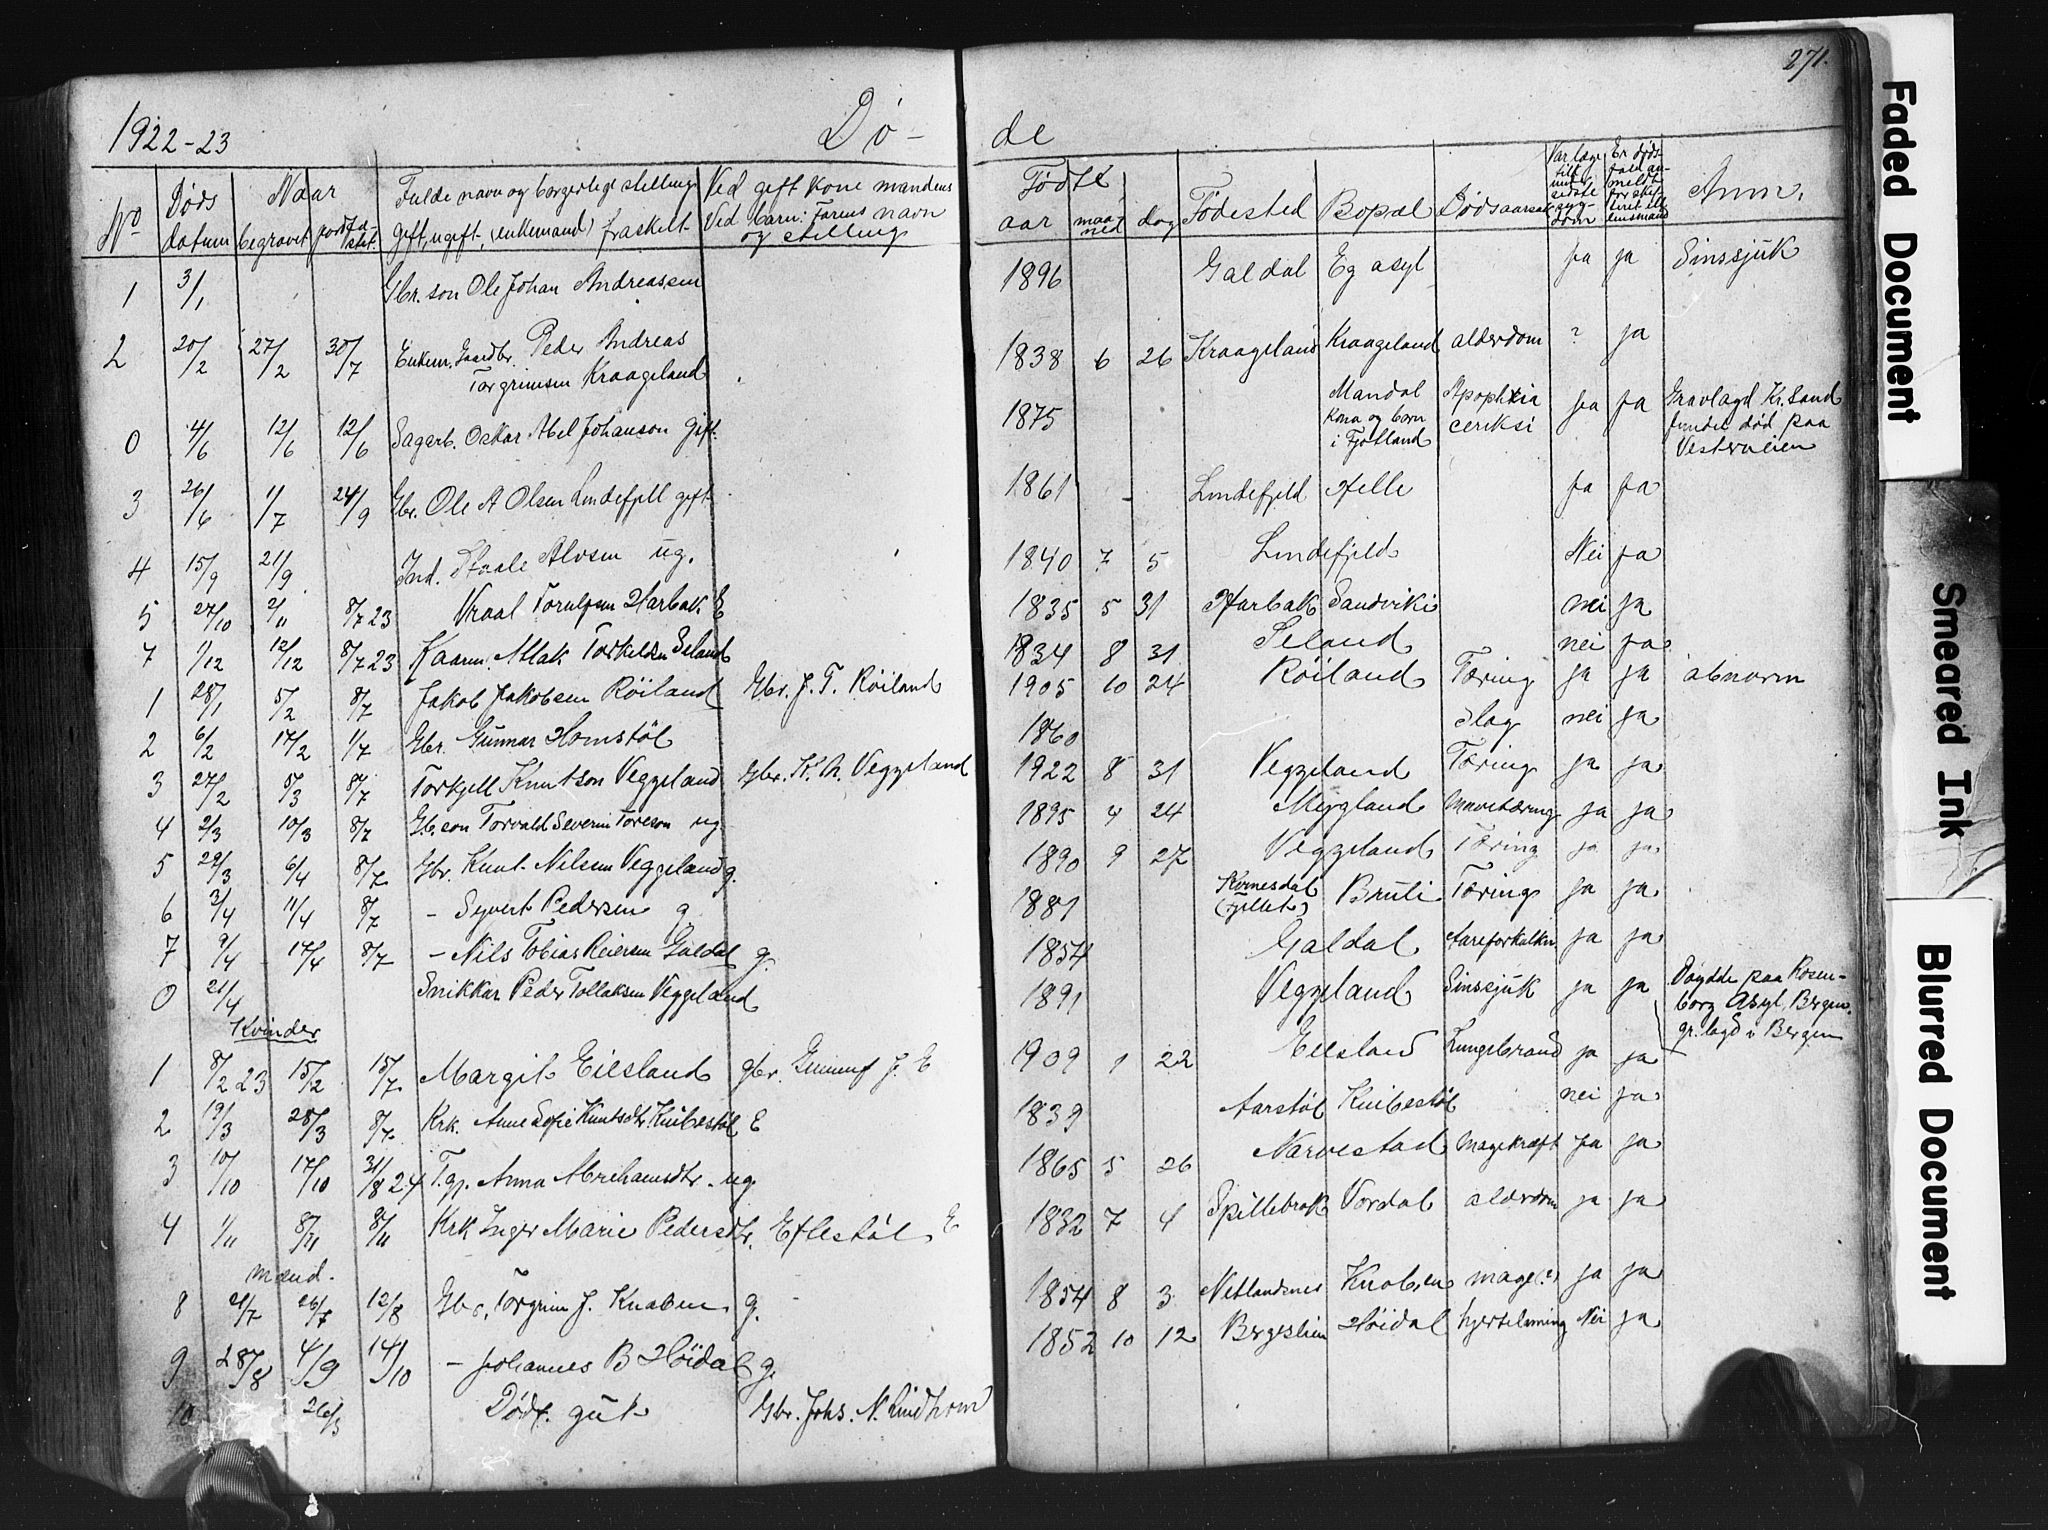 271.
1922-23 Dø- de
No Døds datum Naar begravet jordfæstet Fulde navn og borgerlige stilling Gift, ugift, (enkemand) fraskilt Ved gift kone mandens Ved barn: Farens navn og stilling Født aar maaned dag Fødested Bopæl Dødsaarsak Var læge sidste sygdom Er døds- Anm.
1 3/1 Gbr. son Ole Johan Andreassen 1896 Galdal Eg asyl ja ja Sinssjuk
2 20/2 27/2 30/7 Enkem. Gaardbr. Peder Andreas Torgrimsen Kraageland 1838 6 26 Kraageland Kraageland alderdom ? ja
0 4/6 12/6 12/6 Sagarb. Oskar Abel Johanson gift 1875 Mandal kona og born i Fjotland ja ja Gravlagd Kr.sand funden død paa Vestraveien
3 26/6 1/7 24/9 Gbr. Ole A Olsen Lindefjell gift 1861 Lindefjeld Helle ja ja
4 15/9 21/9 Ind. Staale Alvsen ug. 1840 7 5 Lindefjeld Nei ja
5 27/10 2/11 8/7 23 Vraal Torulfsen Harbak E 1835 5 31 Harbak Sandviki nei ja
7 1/12 12/12 8/7 23 Kaarm. Atlak Torkildsen Seland 1834 8 31 Seland nei ja
1 28/1 5/2 8/7 Jakob Jakobsen Röiland Gbr. J. T. Röiland 1905 10 24 Röiland Tæring ja ja abnorm
2 6/2 17/2 1/7 Gbr. Gunnar Homstøl 1860 Slag nei ja
3 27/2 5/3 8/7 Torkjell Knutson Veggeland Gbr. K. A. Veggeland 1922 8 31 Veggeland Tæring ja ja
4 2/3 10/3 8/7 Gb. son Torvald Severin Toreson ug 1895 4 24 Mygland Mavetæring ja ja
5 29/3 6/4 8/7 Gbr. Knut Nilsen Veggeland g. 1890 9 27 Veggeland Tæring ja ja
6 3/4 11/4 8/7 - Syvert Pedersen g 1881 Kvinesdal Bruli Tæring ja ja
7 9/4 17/4 8/7 - Nils Tobias Reiersen Galdal g. 1854 Galdal Aareforkalkn. ja ja
0 21/4 Snikkar Peder Tollaksen Veggeland 1891 Veggeland Sinssjuk ja ja Döydde paa Rosenborg Asyl, Bergen. gr. lagd i Bergen
Kvinder
1 8/2 23 15/2 15/7 Margit Eilsland gbr. J. E 1909 1 22 Eilsland Lungebrand ja ja
2 19/3 28/3 8/7 Krk. Anne Sofie Knutsdtr. Knibestøl E 1839 Aarstøl Knibestøl nei ja
3 10/10 17/10 31/8 24 T.gj. Anna Abrahamsdtr. ug 1865 5 26 Narvestad Magekræft ja ja
4 1/11 8/11 8/11 Krk Inger Marie Pedersdtr. Eftestøl. E 1832 7 4 Spillebrok Vordal alderdom ja ja
Mænd.
8 21/7 26/7 12/8 Gbr. Torgrim J. Knaben g. 1854 8 3 Netlandsnes Knaben mage(?) ja ja
9 28/8 4/9 14/10 - Johannes B Höidal g. 1852 10 12 Bergeslien Höidal hjertelamning Nei ja
10 26/3 Dödf. gut Gbr. Johs. N. Lindhom
Faded Document
Smeared Ink
Blurred Document